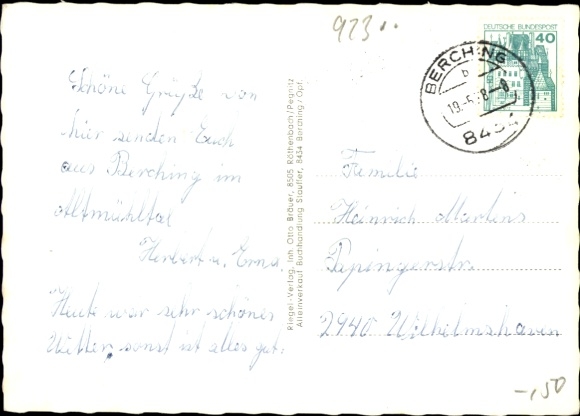 923..
DEUTSCHE BUNDESPOST
40
BERCHING
b
19.-5.8
8434
Schöne Grüße von
hier senden Euch
aus Berching im
Altmühltal
Herbert u. Erna
Heute war sehr schönes
Wetter, sonst ist alles gut.
Riegel-Verlag, Inh. Otto Bräuer, 8505 Röthenbach/Pegnitz
Alleinverkauf Buchhandlung Stauffer, 8434 Berching/Opf.
Familie
Heinrich Martens
Papingerstr.
2940 Wilhelmshaven
-,50